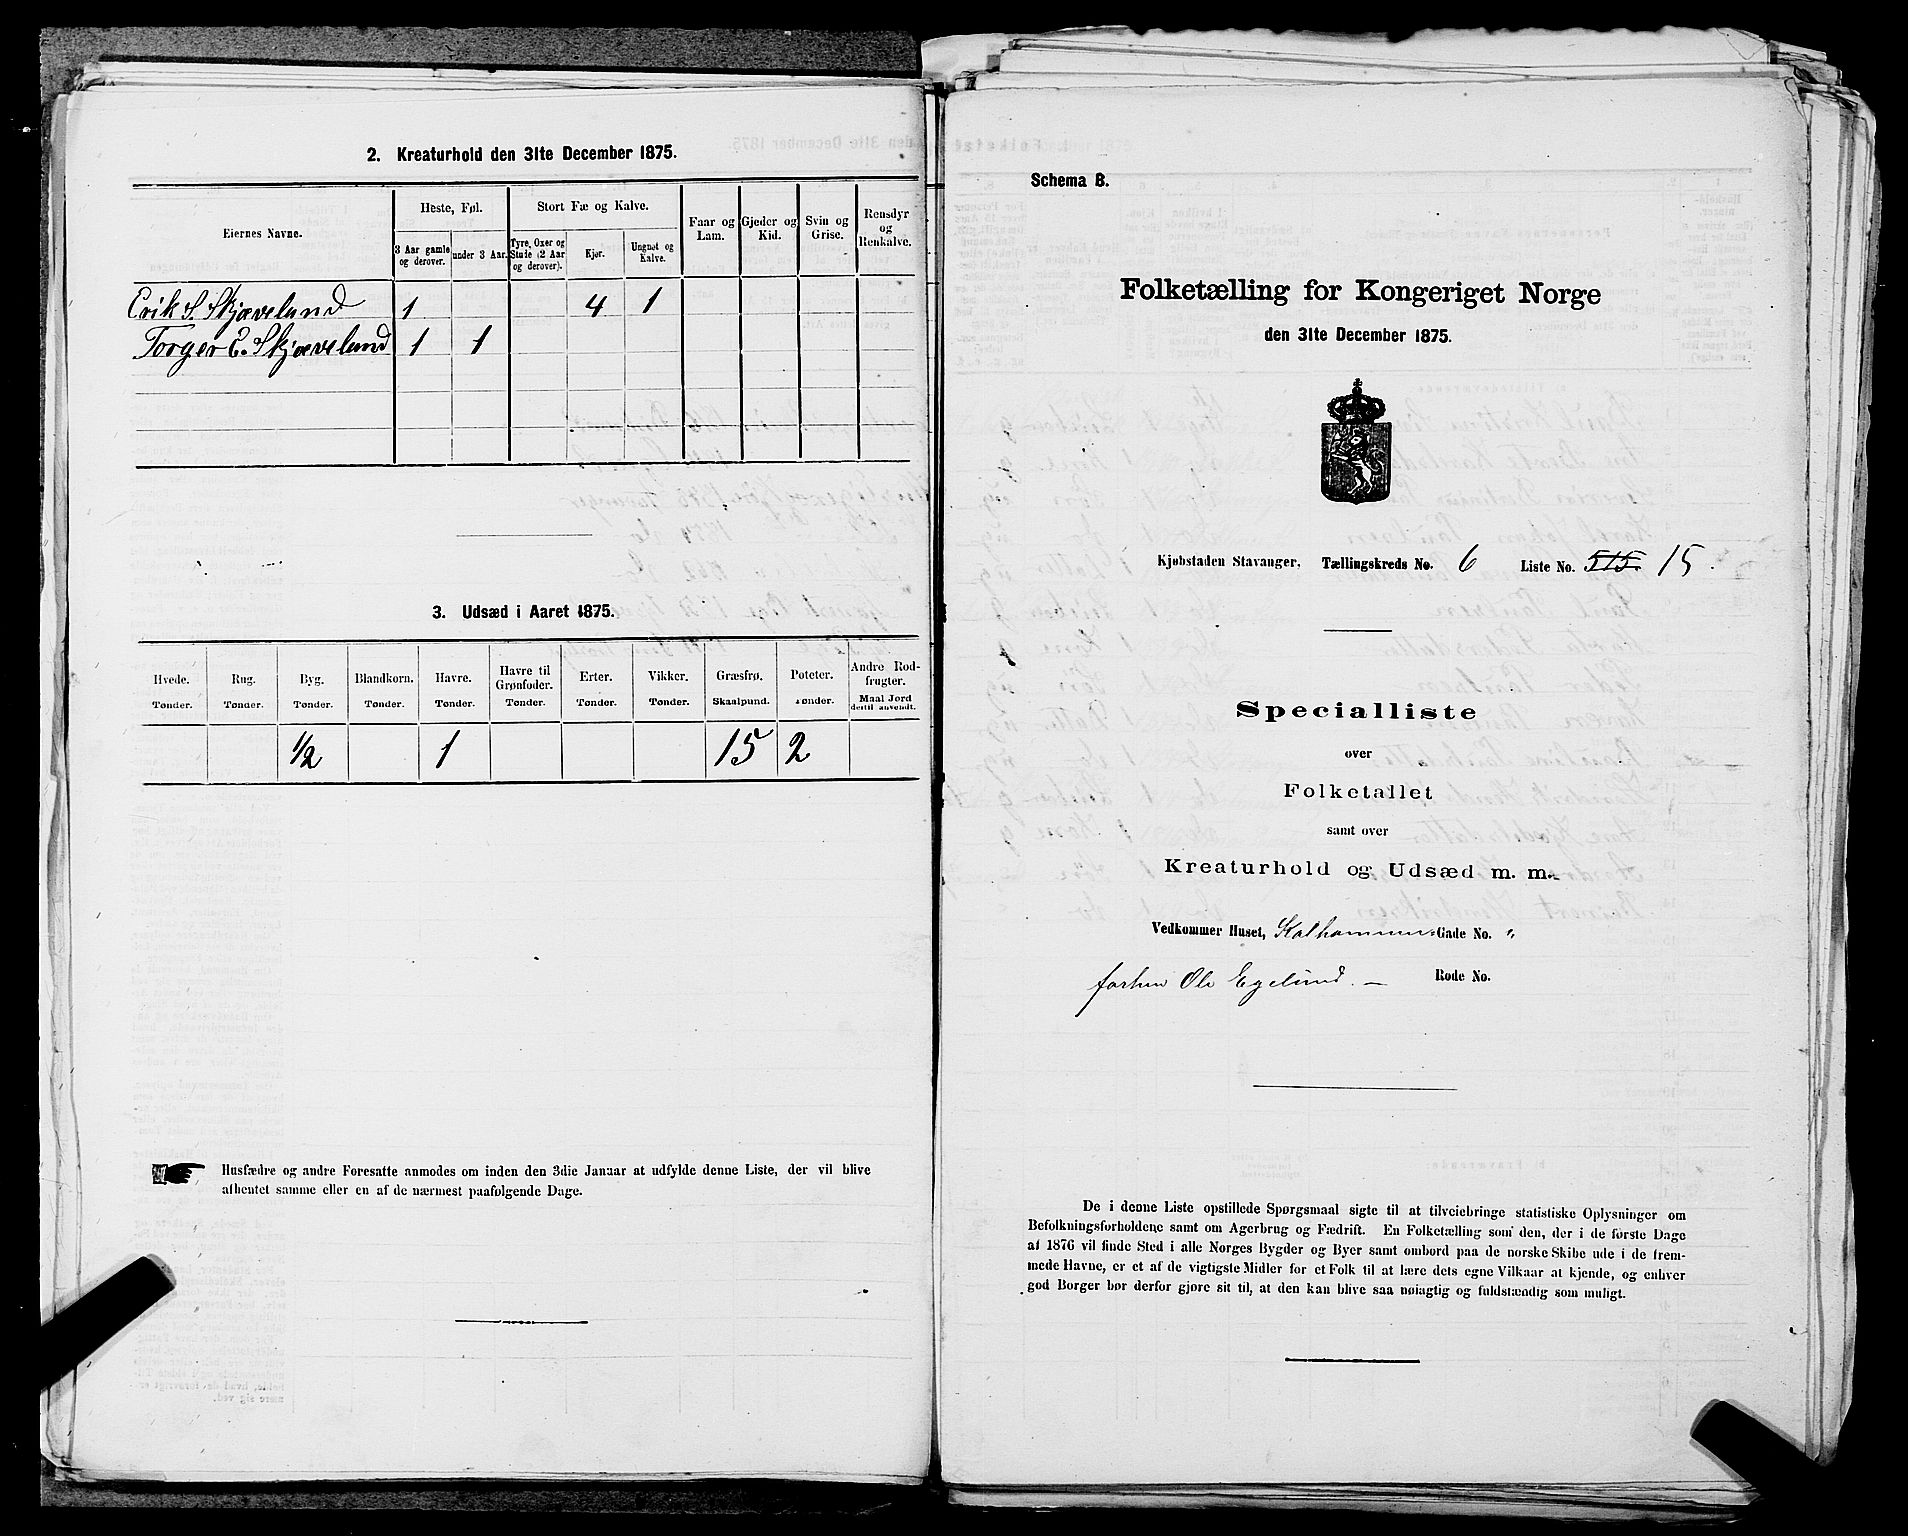 2. Kreaturhold den 31te December 1875.
Eiernes Navne.
Heste, Føl.
Stort Fæ og Kalve.
Faar og Lam.
Gjeder og Kid.
Svin og Grise.
Rensdyr og Renkalve.
3 Aar gamle og derover.
under 3 Aar.
Tyre, Oxer og Stude (2 Aar og derover).
Kjør.
Ungnøt og Kalve.
Erik S. Skjæveland 1 4 1
Torger E. Skjæveland 1 1
3. Udsæd i Aaret 1875.
Hvede. Rug. Byg. Blandkorn. Havre. Havre til Grønfoder. Erter. Vikker. Græsfrø. Poteter. Andre Rodfrugter.
Tønder. Tønder. Tønder. Tønder. Tønder. Tønder. Tønder. Tønder. Skaalpund. Tønder. Maal Jord dertil anvendt.
1/2 1 15 2
Husfædre og andre Foresatte anmodes om inden den 3die Januar at udfylde denne Liste, der vil blive
afhentet samme eller en af de nærmest paafølgende Dage.
Schema B.
Folketælling for Kongeriget Norge
den 31te December 1875.
Kjøbstaden Stavanger, Tællingskreds No. 6 Liste No. 515. 15.
Specialliste
over
Folketallet
samt over
Kreaturhold og Udsæd m. m.
Vedkommer Huset, Kalhammer Gade No. "
forhen Ole Egelund. — Rode No.
De i denne Liste opstillede Spørgsmaal sigte til at tilveiebringe statistiske Oplysninger om
Befolkningsforholdene samt om Agerbrug og Fædrift. En Folketælling som den, der i de første Dage
af 1876 vil finde Sted i alle Norges Bygder og Byer samt ombord paa de norske Skibe ude i de frem-
mede Havne, er et af de vigtigste Midler for et Folk til at lære dets egne Vilkaar at kjende, og enhver
god Borger bør derfor gjøre sit til, at den kan blive saa nøiagtig og fuldstændig som muligt.